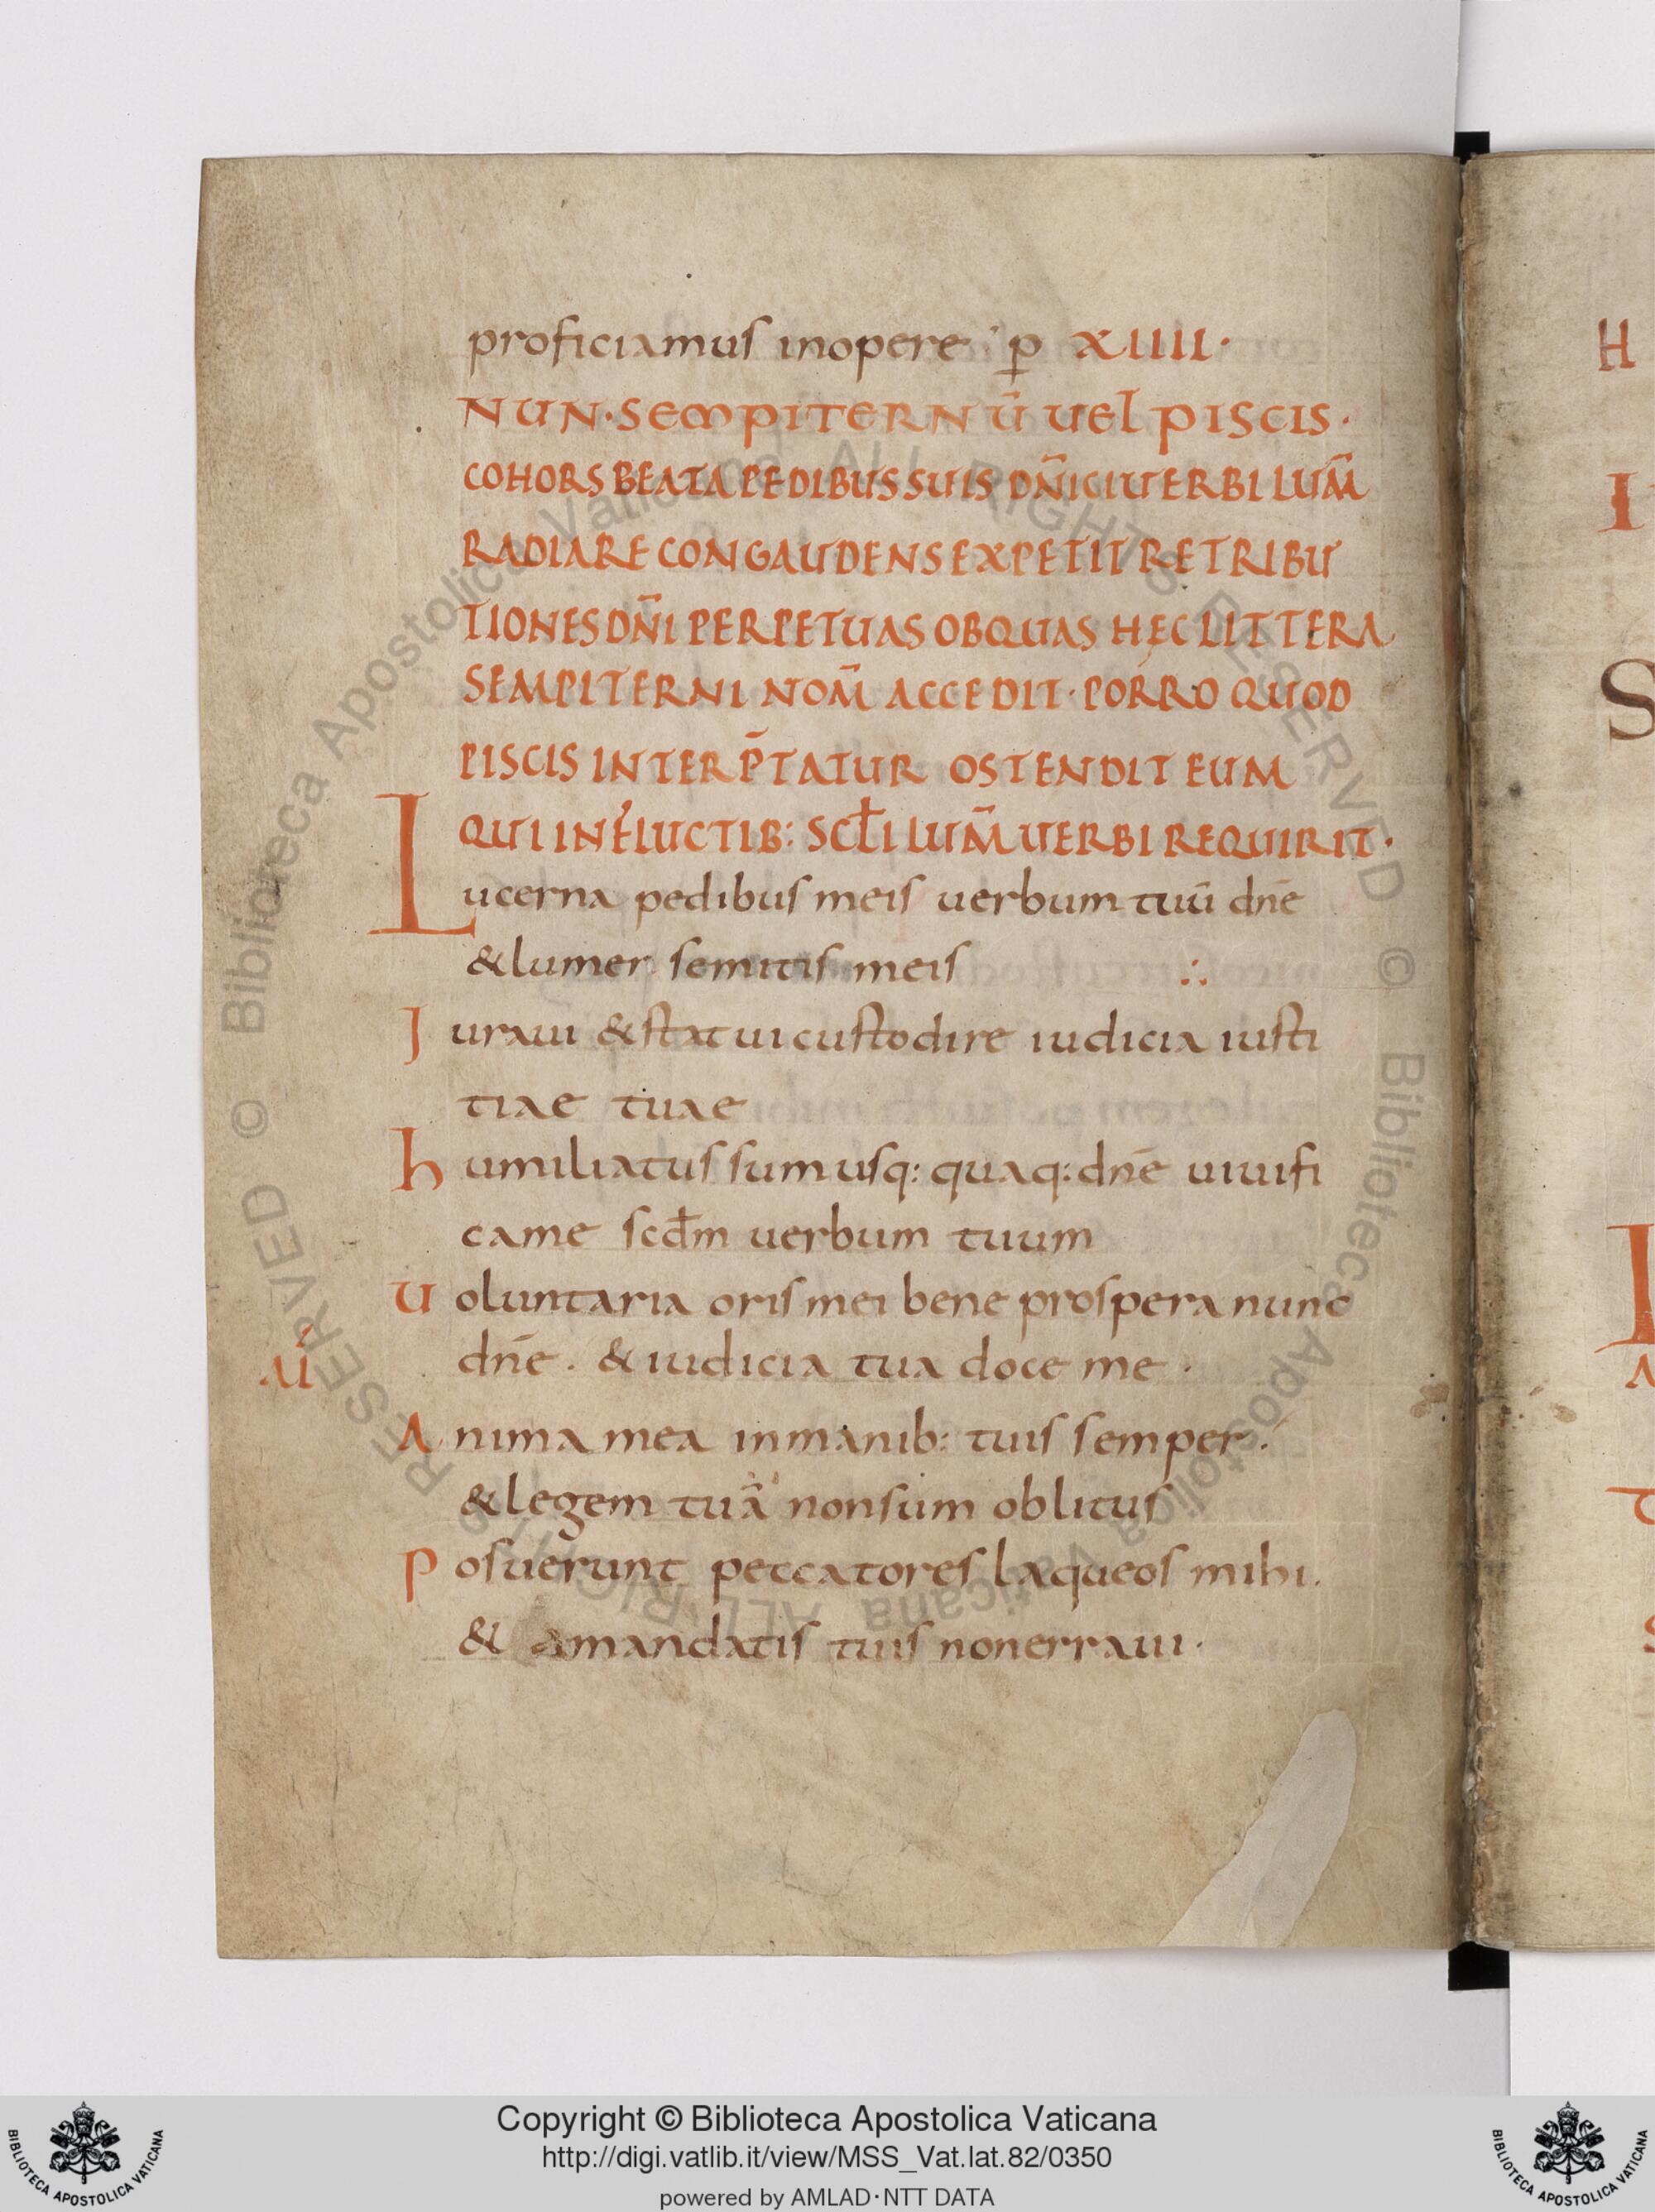 proficiamus inopere p̱ XIIII·
NUN·SEMPITERNŪ UEL PISCIS·
COHORS BEATA PEDIBUS SUIS DN̄ICI UERBI LUM̄
RADIARE CONGAUDENS EXPETIT RETRIBU
TIONES DN̄I PERPETUAS OBQUAS HĘC LITTERA
SEMPITERNI NOM̄ ACCEDIT· PORRO QUOD
PISCIS INTERP̄TATUR OSTENDIT EUM
QUI INFLUCTIB: SCL̄I LUM̄ UERBI REQUIRIT·
Lucerna pedibus meis uerbum tuū dn̄e
&lumen semitis meis ∴
Juraui &statui custodire iudicia iusti
tiae tuae
humiliatus sum usq: quaq: dn̄e uiuifi
came scd̄m uerbum tuum
Uoluntaria oris mei bene prospera nunc
dn̄e. & iudicia tua doce me ·
Anima mea inmanib: tuis semper·
&legem tuā nonsum oblitus
Posuerunt peccatores laqueos mihi.
& amandatis tuis nonerraui·
H
I
S
I
A
Copyright © Biblioteca Apostolica Vaticana
http://digi.vatlib.it/view/MSS_Vat.lat.82/0350
powered by AMLAD·NTT DATA
BIBLIOTECA APOSTOLICA VATICANA
BIBLIOTECA APOSTOLICA VATICANA
© Biblioteca Apostolica Vaticana ALL RIGHTS RESERVED © Biblioteca Apostolica Vaticana ALL RIGHTS RESERVED